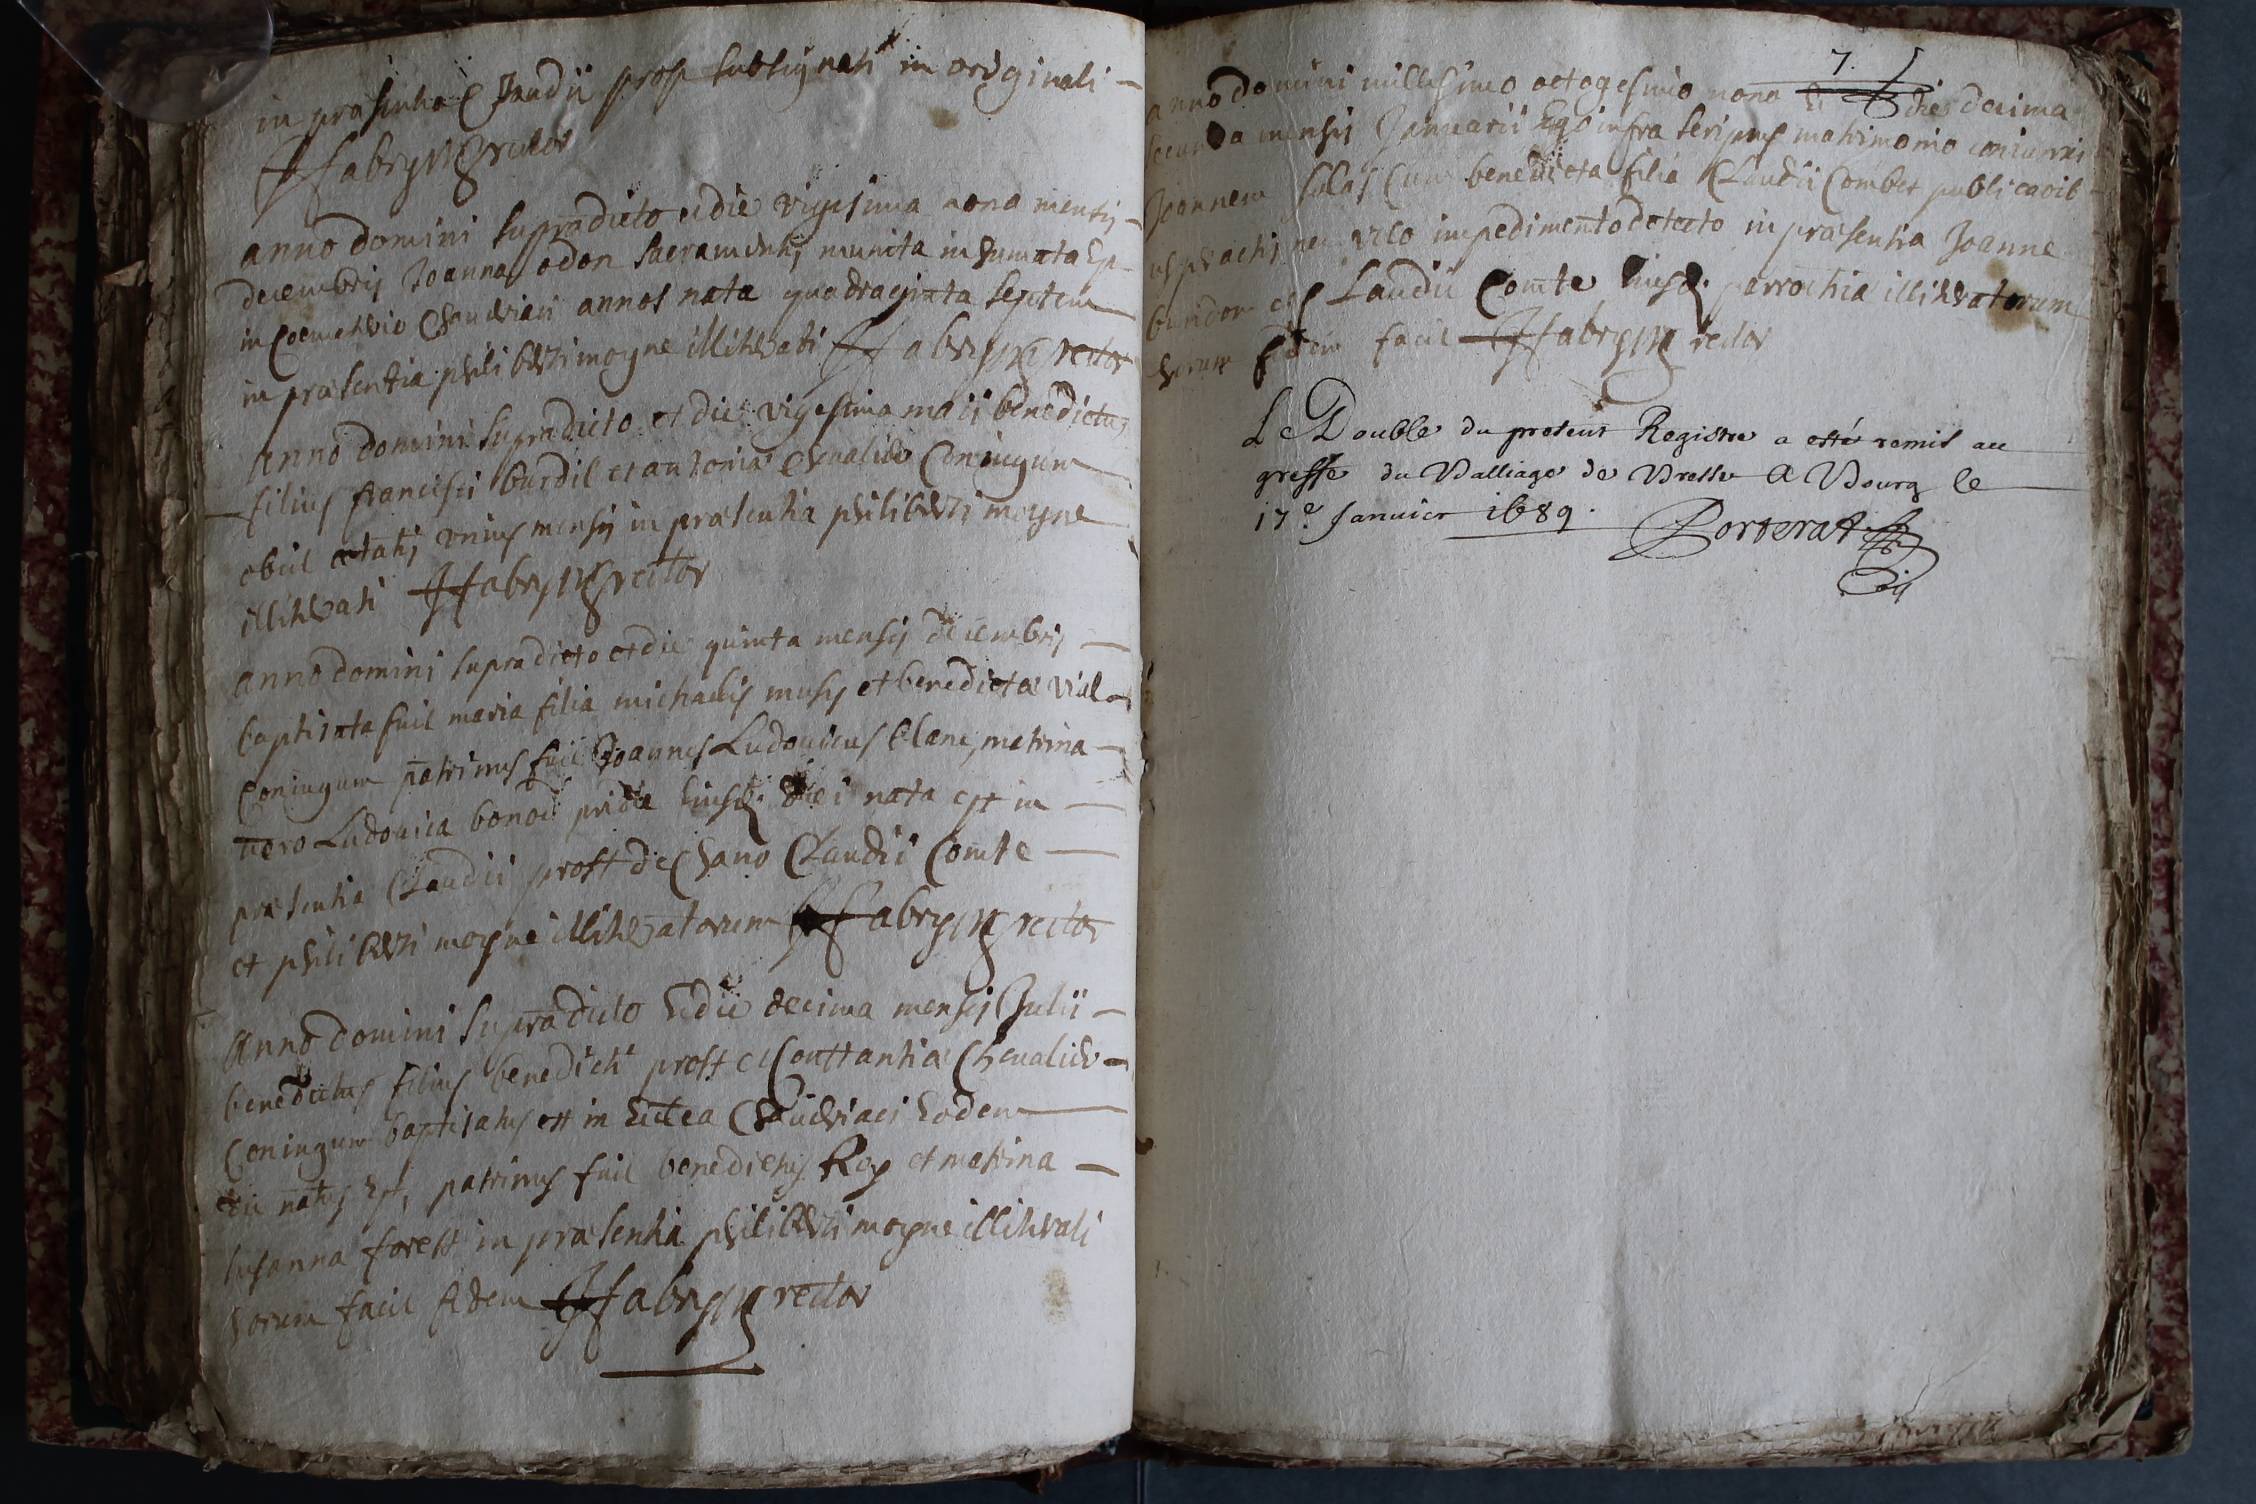 in præsentia Claudii prost subsignati in originali
JJfabry rector
anno domini supradicto et die vigesima nona mensis
decembris Joanna odon sacramentis munita inhumata est
in Coemeterio Chaveriaci annos nata quadraginta septem
in præsentia philiberti moyne illiterati JJfabry rector
Anno domini supradicto et die vigesima maii benedictus
filius francisci burdil et antoniæ chevalier Coniugum
obiit ætatis unius mensis in præsentia philiberti moyne
illiterati JJfabry rector
anno domini supradicto et die quinta mensis decembris
baptisata fuit maria filia michaelis musy et benedictæ vial
Coniugum patrinus fuit Joannes Ludovicus blanc, matrina
vero Ludovica bonod pridie eiusd. diei nata est in
præsentia Claudii prost de Chano Claudii Comte
et philiberti moyne illiteratorum JJfabry rector
Anno domini supradicto et die decima mensis Julii
benedictus filius benedicti prost et Constantiæ Chevalier
Coniugum baptisatus est in Ecclea Chaveriaci eodem
die natus est, patrinus fuit benedictus Rey et matrina
susanna forest in præsentia philiberti moyne illiterati
horum facit fidem JJfabry rector
7.
anno domini millesimo octogesimo nono et die decima
secunda mensis Januarii Ego infra scriptus matrimonio coniunxi
Joannem salas Cum benedicta filia Claudii Combet publicaoib
us peractis nec ullo impedimento detecto in præsentia Joanne
burdon et Claudii Comte eiusd. parrochiæ illiteratorum
horum fidem facit JJfabry rector
Le Double du present Registre a esté remis au
greffe du Balliage de Bresse A Bourg le
17e. Janvier 1689. Porterat